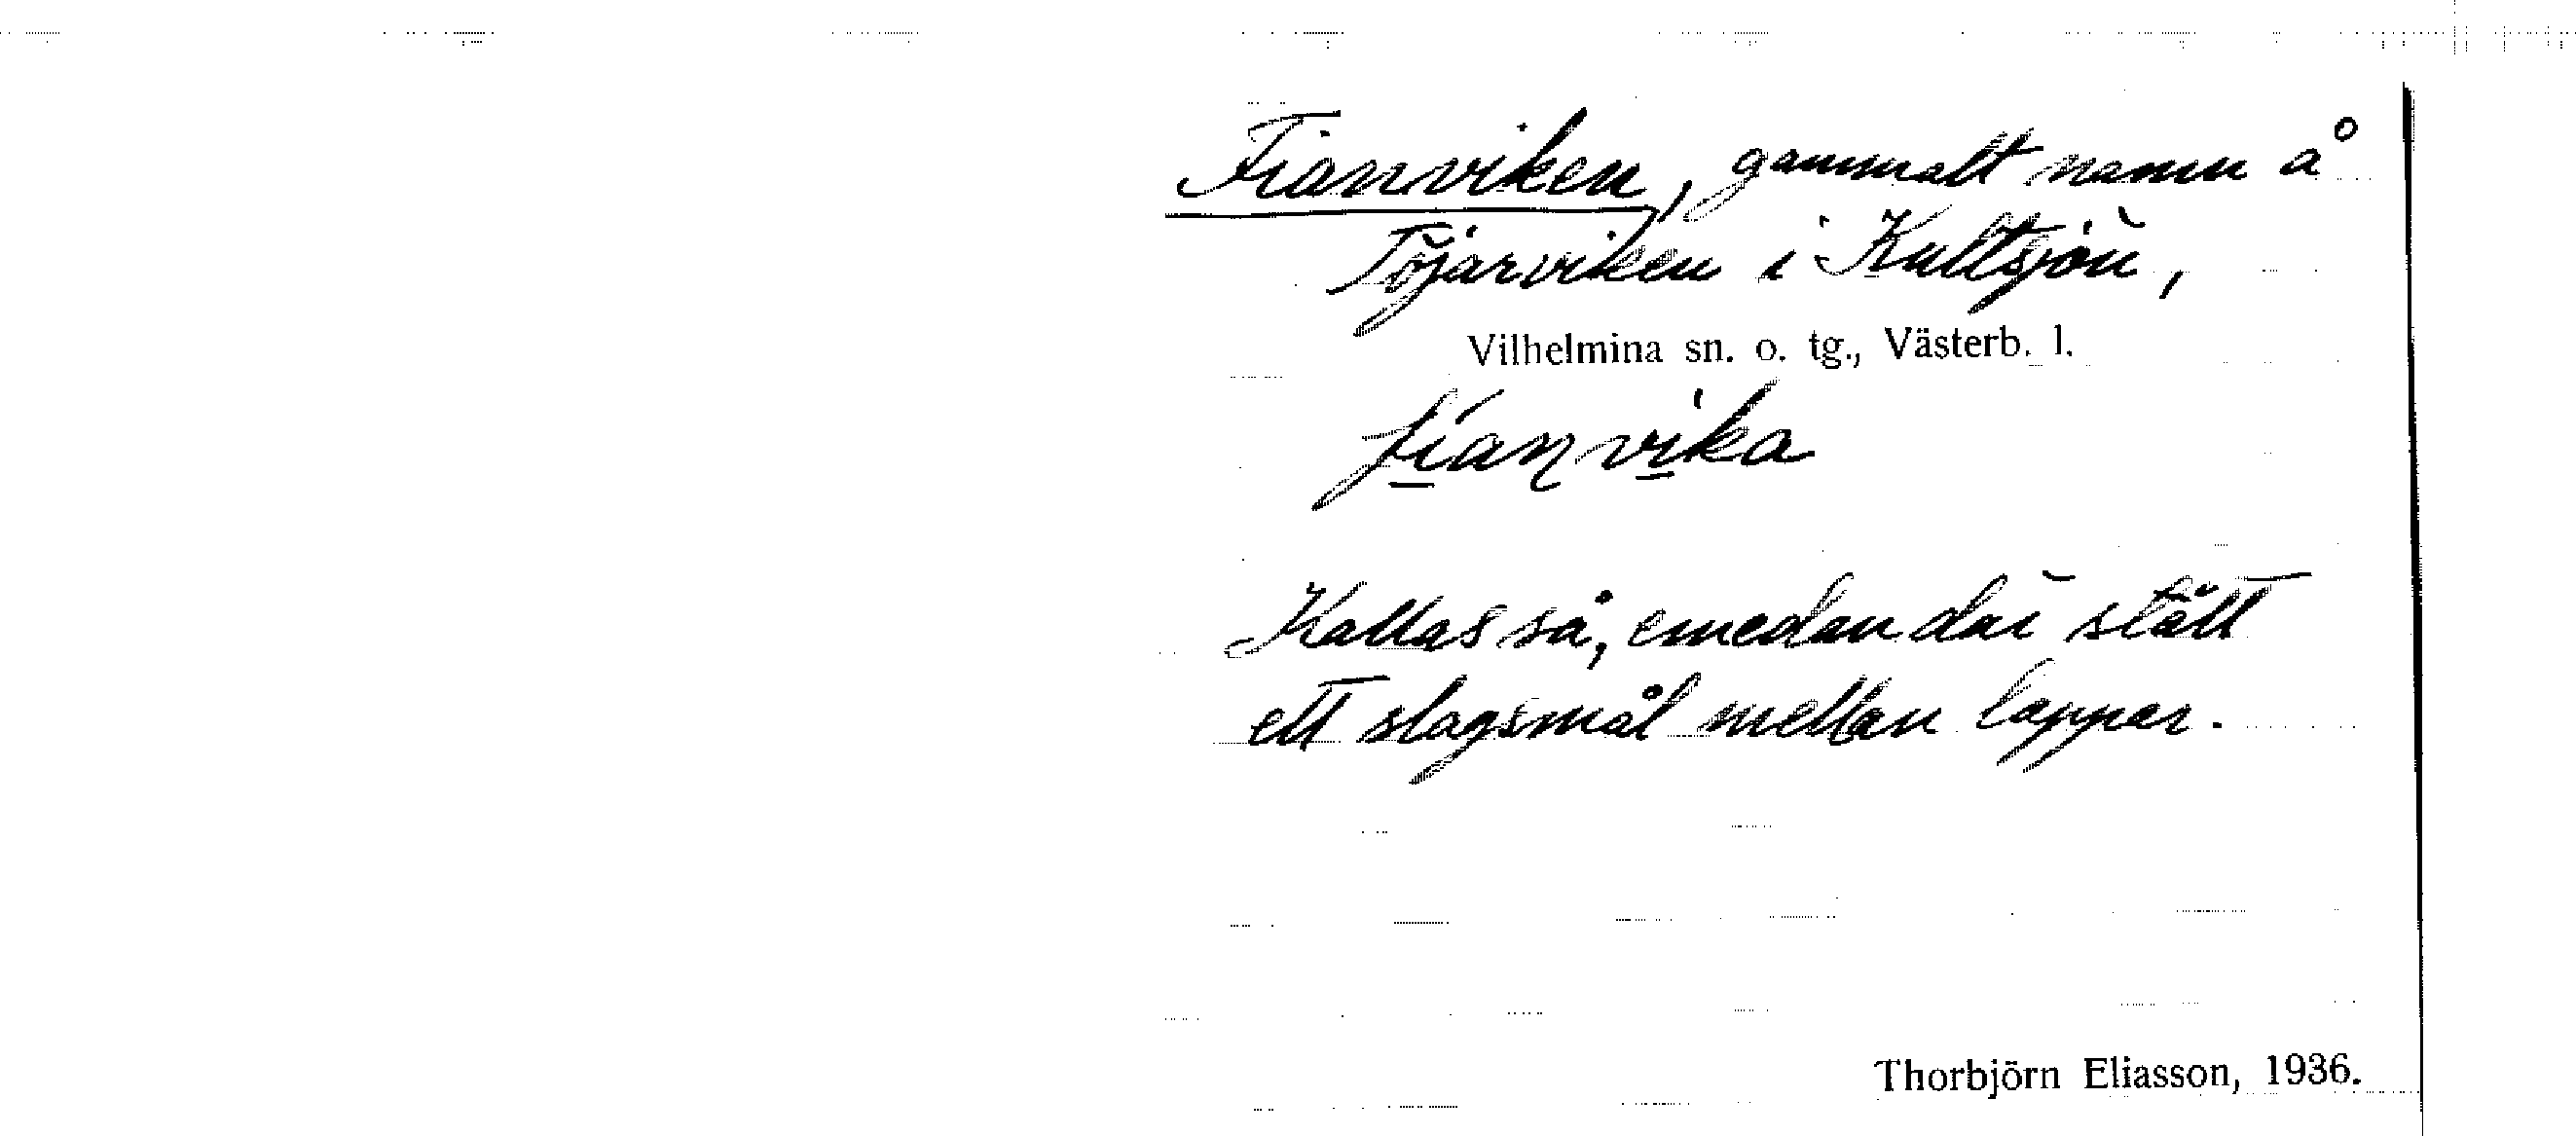 Fianviken, gammalt namn å
Töjärviken i Kultsjön,
Vilhelmina sn. o. tg., Västerb. l.
fianvika
Kallas så, emedan där stått
ett slagsmål mellan lappar.
Thorbjörn Eliasson, 1936.